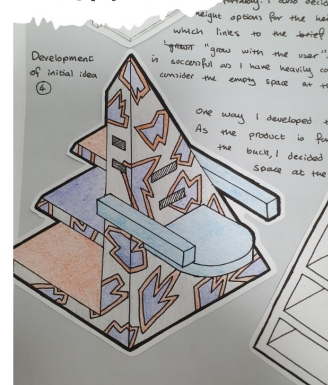 portably. I also decid
height options for the he
which links to the brief
grown "grow with the user"
is successful as I have heavily co
consider the empty space at t
Development
of initial idea
4
One way I developed t
As the product is fa
the back, I decided
space at the